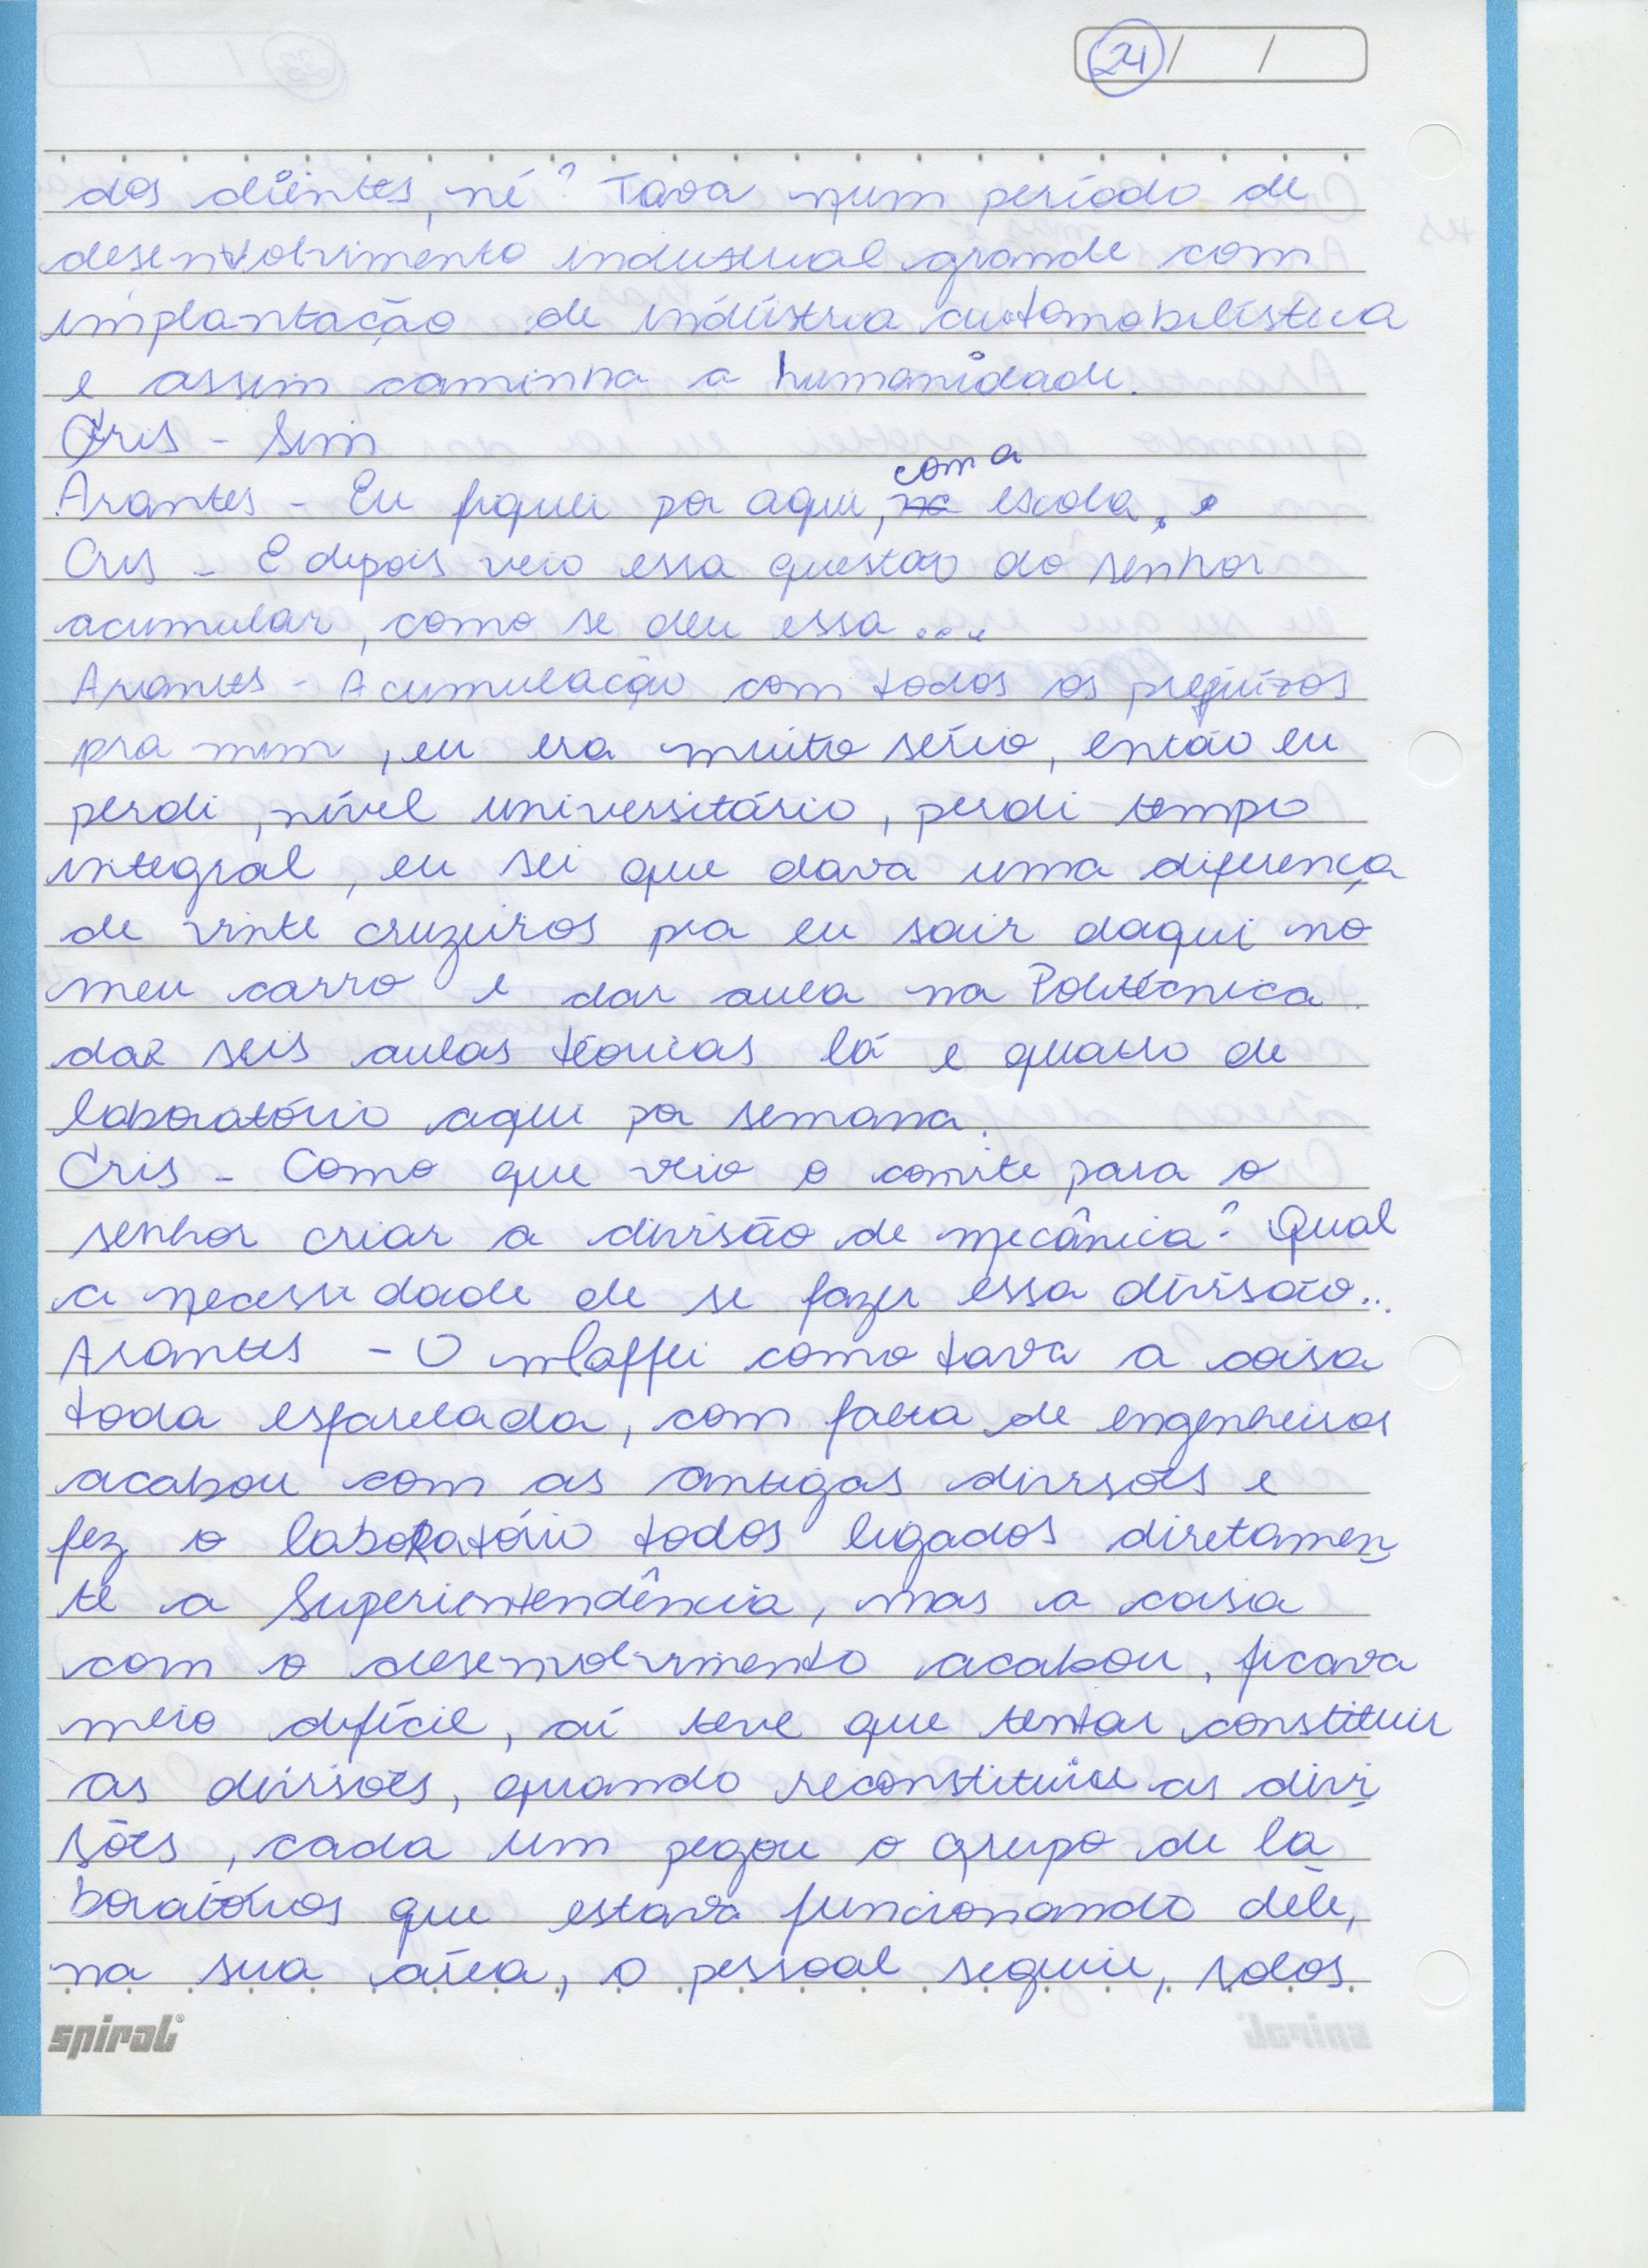 24 / /
dos clientes, né? Tava num período de
desenvolvimento industrial grande com
implantação de indústria automobilística
e assim caminha a humanidade.
Cris - Sim
Arantes - Eu fiquei por aqui, na com a escola.
Cris - E depois veio essa questão do senhor
acumular, como se deu essa ....
Arantes - Acumulação com todos os prejuízos
pra mim, eu era muito sério, então eu
perdi, nível universitário, perdi tempo
integral, eu sei que dava uma diferença
de vinte cruzeiros pra eu sair daqui no
meu carro e dar aula na Politécnica
dar seis aulas teóricas lá e quatro de
laboratório aqui por semana.
Cris - Como que veio o convite para o
senhor criar a divisão de mecânica? Qual
a necessidade de se fazer essa divisão...
Arantes - O Maffei como tava a coisa
toda esfarelada, com falta de engenheiros
acabou com as antigas divisões e
fez o laboratório todos ligados diretamen-
te a Superientendência, mas a coisa
com o desenvolvimento acabou, ficava
meio difícil, aí teve que tentar constituir
as divisões, quando reconstituiu as divi-
sões, cada um pegou o grupo de la-
boratórios que estava funcionando dele,
na sua área, o pessoal seguiu, solos
spiral®